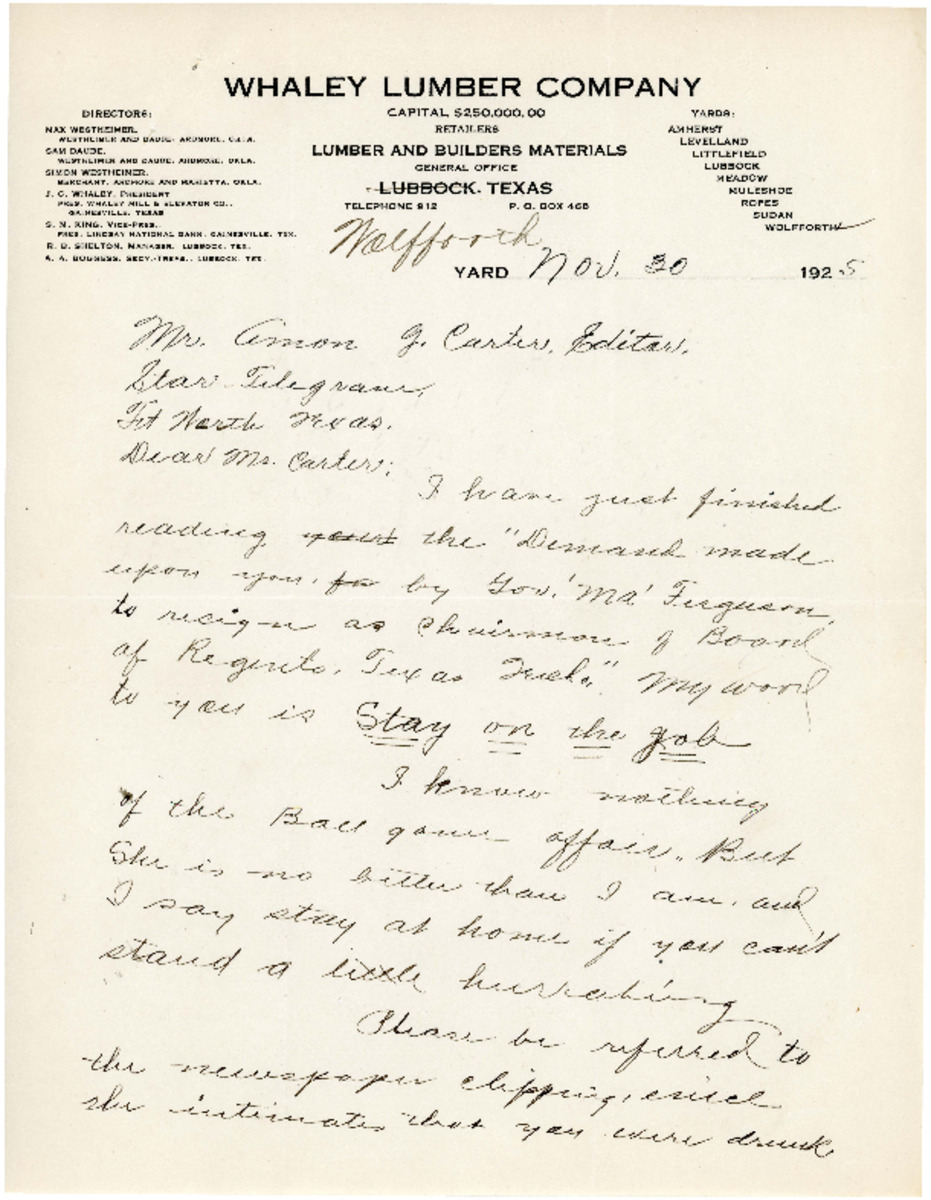 WHALEY LUMBER COMPANY
CAPITAL $250,000.00
RETAILERS
LUMBER AND BUILDERS MATERIALS
GENERAL OFFICE
LUBBOCK, TEXAS
TELEPHONE 812 P. O. BOX 468
DIRECTORS:
MAX WESTHEIMER,
WESTHEIMER AND DAUBE, ARDMORE, OKLA.
SAM DAUBE,
WESTHEIMER AND DAUBE, ARDMORE, OKLA.
SIMON WESTHEINER,
MERCHANT, ARDMORE AND MARIETTA, OKLA.
J. C. WHALEY, PRESIDENT
PRES. WHALEY MILL & ELEVATOR CO.,
GAINESVILLE, TEXAS
S. N. KING, VICE-PRES.
PRES. LINDSAY NATIONAL BANK, GAINESVILLE, TEX.
R. B. SHELTON, MANAGER, LUBBOCK, TEX.
A. A. BURGESS, SECY.-TREAS., LUBBOCK, TEX.
YARDS:
AMHERST
LEVELLAND
LITTLEFIELD
LUBBOCK
MEADOW
MULESHOE
ROPES
SUDAN
WOLFFORTH
Wolfforth
YARD Nov. 30 1925
Mr. Amon G. Carter, Editor,
Star Telegram,
Ft Worth Texas.
Dear Mr. Carter:
I have just finished
reading the "Demand made
upon you, by Gov. 'Ma' Ferguson,
to resign as Chairman of Board
of Regents, Texas Tech." My word
to you is Stay on the job
I know nothing
of the Ball game affair. But
She is no better than I am, and
I say stay at home if you can't
stand a little hurrahing
Please be referred to
the newspaper clipping, encl
she intimates that you were drunk